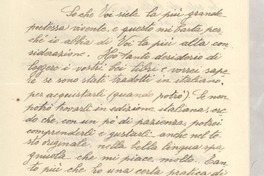 So che Voi siete la più grande
poetessa vivente, e questo mi basta per-
chè io abbia di Voi la più alta con-
siderazione. Ho tanto desiderio di
leggere i vostri bei libri e vorrei sape-
re se sono stati tradotti in italiano,
per acquistarli (quando potrò). E non
potrò trovarli in edizione italiana, cre-
do che, con un pò di pazienza, potrei
comprenderli e gustarli anche nel te-
sto originale, nella bella lingua spa-
gnuola che mi piace molto. Tan-
to più che ho una certa pratica di